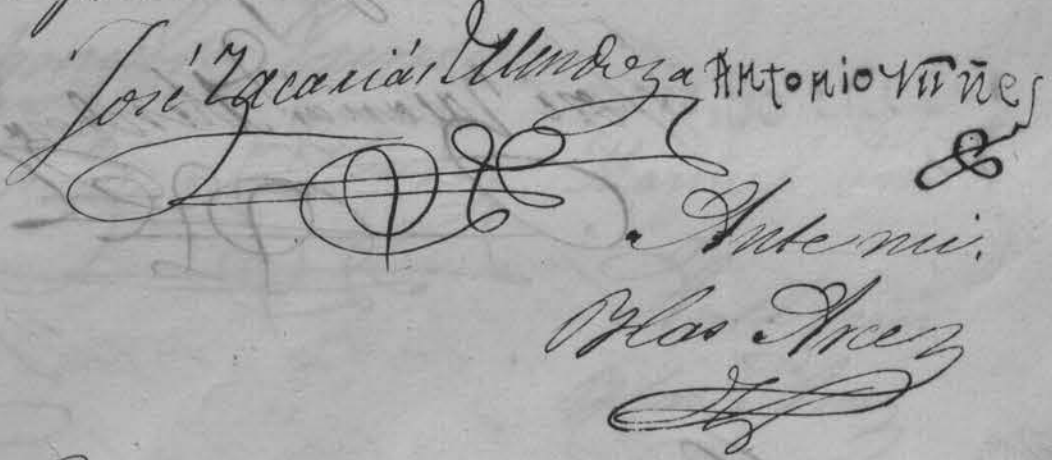 José Zacarias Mendoza Antonio Nuñes
Ante mi.
Blas Arce